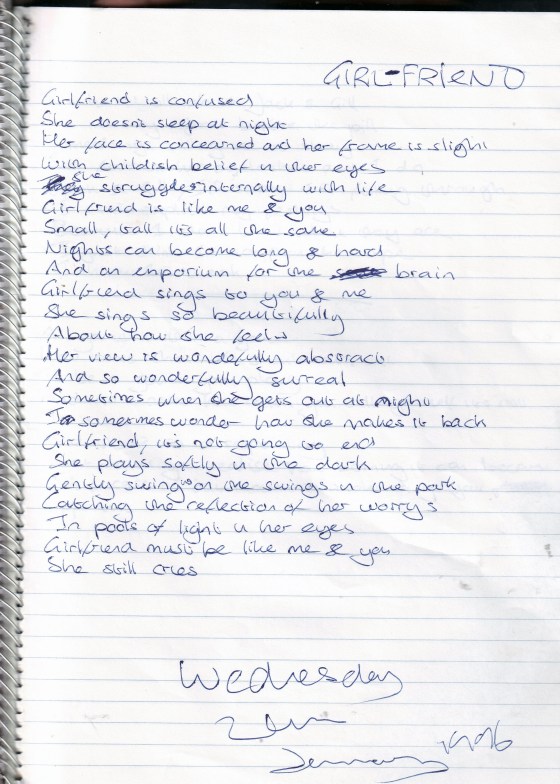 GIRL-FRIEND
Girlfriend is confused
She doesn't sleep at night
Her face is concearned and her frame is slight
With childish belief in her eyes
she struggles internally with life
Girlfriend is like me & you
Small, tall it's all the same
Nights can become long & hard
And an emporium for the brain
Girlfriend sings to you & me
She sings so beautifully
About how she feels
Her view is wonderfully abstract
And so wonderfully surreal
Sometimes when she gets out at night
I sometimes wonder how she makes it back
Girlfriend, it's not going to end
She plays softly in the dark
Gently swings on the swings in the park
Catching the reflection of her worrys
In pools of light in her eyes
Girlfriend must be like me & you
She still cries
Wednesday
January 1996